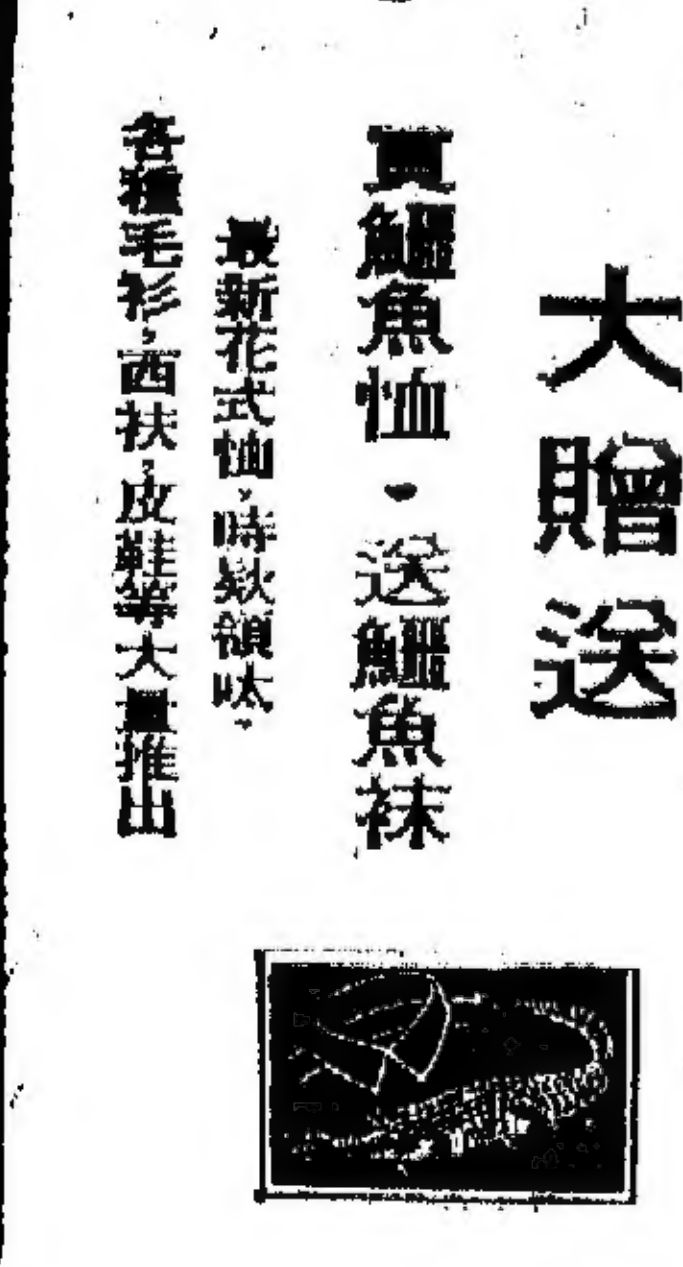 大贈送
買鱷魚恤・送鱷魚襪
最新花式恤，時款領呔，
各種毛衫，西裝，皮鞋等大量推出